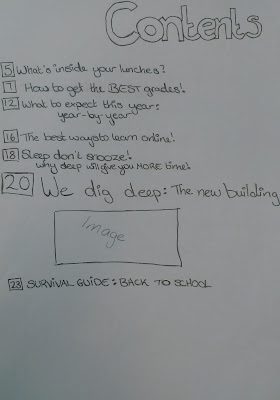 Contents
5 What's inside your lunches?
7 How to get the BEST grades!
12 What to expect this year:
year-by-year
16 The best ways to learn online!
18 Sleep don't snooze!
why sleep will give you MORE time!
20 We dig deep: The new building
Image
23 SURVIVAL GUIDE: BACK TO SCHOOL